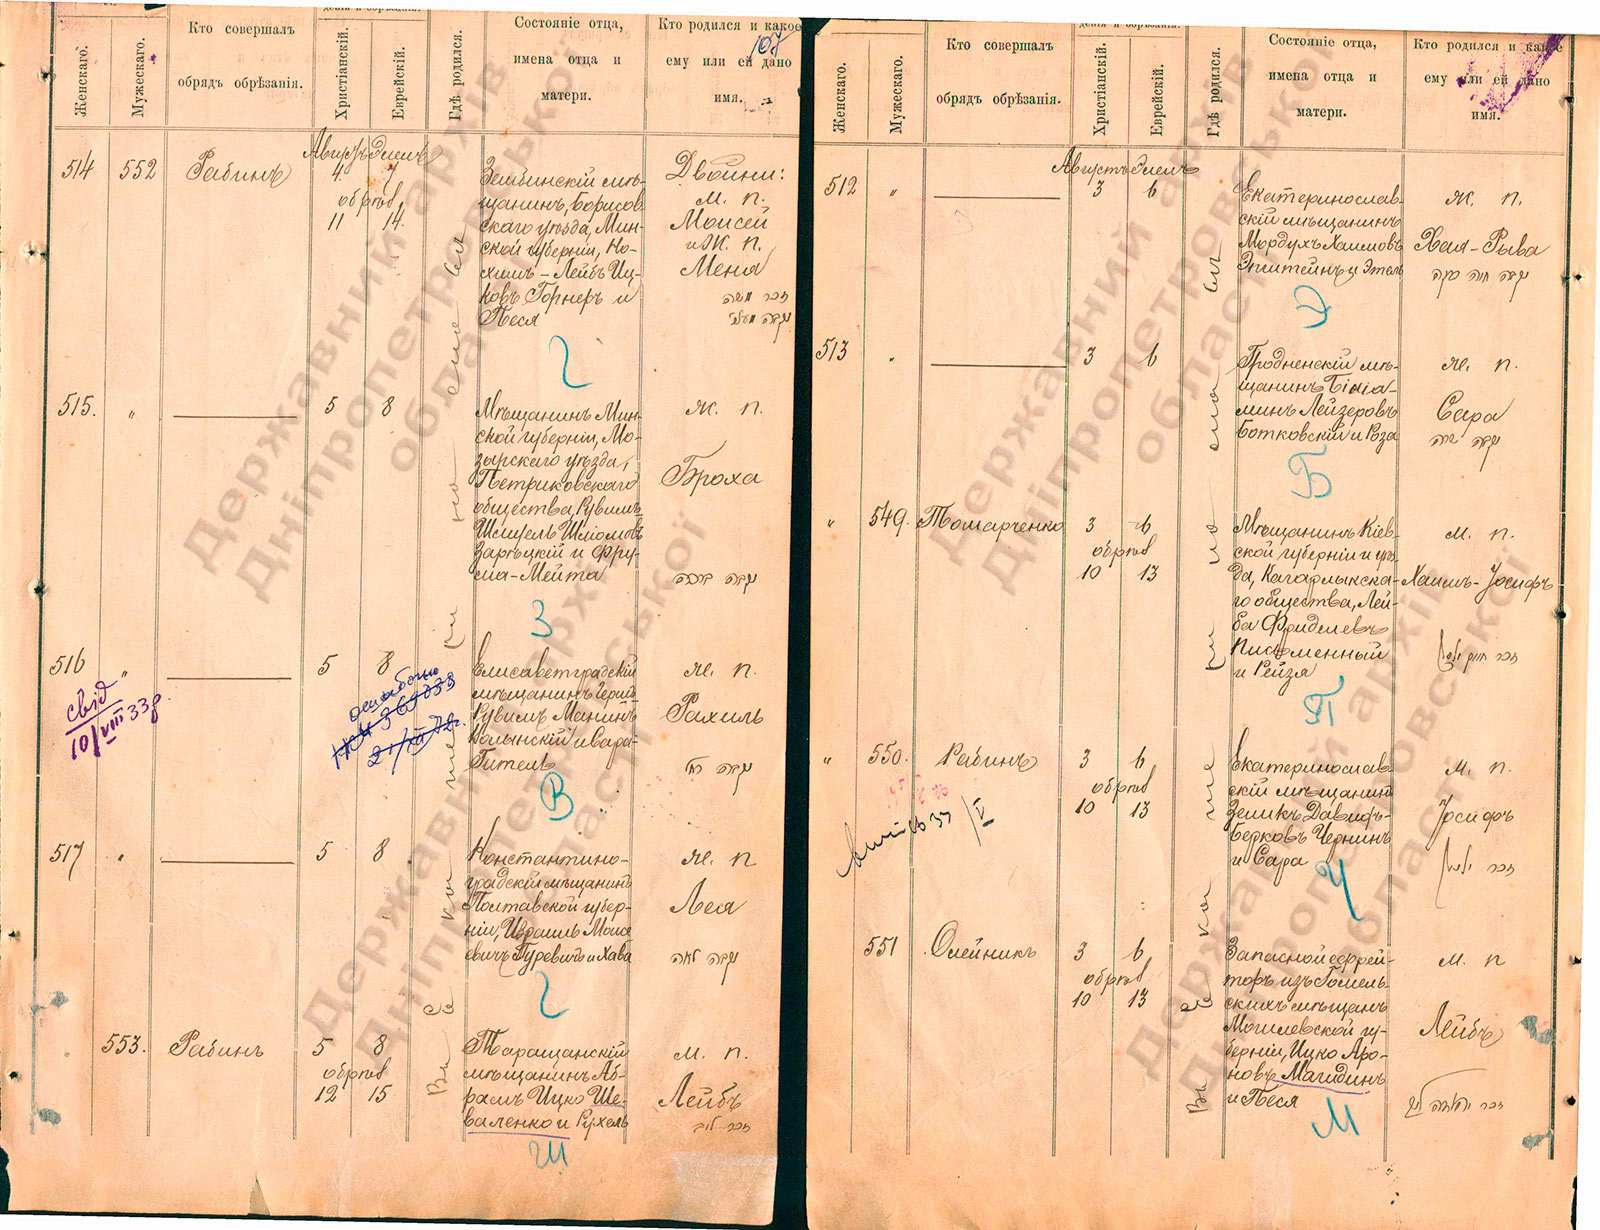 Женскаго.
Мужескаго.
Кто совершалъ
обрядъ обрѣзанія.
Христіанскій.
Еврейскій.
Гдѣ родился.
Состояніе отца,
имена отца и
матери.
Кто родился и какое
ему или ей дано
имя.
107
Августъ Элелъ
514 552 Рабинъ 4 7
обрѣз
11 14
Зембинскій мѣ-
щанинъ, Борисов
скаго уѣзда, Мин-
ской губерніи, Но-
химъ-Лейбъ Иц-
ковъ Горнеръ и
Песя
Двойни:
м. п.
Моисей
и ж. п.
Меня
Г
515. " 5 8
Мѣщанинъ Мин-
ской губерніи, Мо-
зырскаго уѣзда,
Петриковскаго
общества, Рувимъ-
Шмуель Шліомовъ
Зарѣцкій и Фру-
ма-Мейта
ж. п.
Броха
З
516 " 5 8
свід
10/VIII 33 р
Елисаветградскій
мѣщанинъ
Рувимъ Манинъ
Волынскій и Сара-
Гитель
ж. п.
Рахиль
В
517 " 5 8
Константино-
градскій мѣщанинъ
Полтавской губер-
ніи, Израиль Моисе
евичъ Гуревичъ и Хава
ж. п
Лея
Г
553. Рабинъ 5 8
обрѣз
12 15
Таращанскій
мѣщанинъ Аб-
рамъ Ицко Ше-
валенко и Рухель
м. п.
Лейбъ
Ш
Женскаго.
Мужескаго.
Кто совершалъ
обрядъ обрѣзанія.
Христіанскій.
Еврейскій.
Гдѣ родился.
Состояніе отца,
имена отца и
матери.
Кто родился и какое
ему или ей дано
имя.
Августъ Элелъ
512 " 3 6
Екатеринослав-
скій мѣщанинъ
Мордухъ Хаимовъ
Эпштейнъ и Этель
ж. п.
Хая-Рыва
Э
513 " 3 6
Гродненскій мѣ-
щанинъ Бинia-
минъ Лейзеровъ
Ботковскій и Роза
ж. п.
Сара
Б
" 549. Томарченко 3 6
обрѣз
10 13
Мѣщанинъ Кіев-
ской губерніи и уѣз-
да, Кагарлыкска-
го общества, Лей-
ба Фриделевъ
Писменный
и Рейзя
м. п.
Хаимъ-Іосифъ
П
" 550. Рабинъ 3 6
обрѣз
10 13
Екатеринослав-
скій мѣщанинъ
Зеликъ Давидъ-
Берковъ Чернинъ
и Сара
м. п.
Іосифъ
Ч
551 Олейникъ 3 6
обрѣз
10 13
Запасной ефрей-
торъ изъ Гомель-
скихъ мѣщанъ
Могилевской гу-
берніи, Ицко Аро-
новъ Магидинъ
и Песя
м. п
Лейбъ
М
Державний архів
Дніпропетровської
області